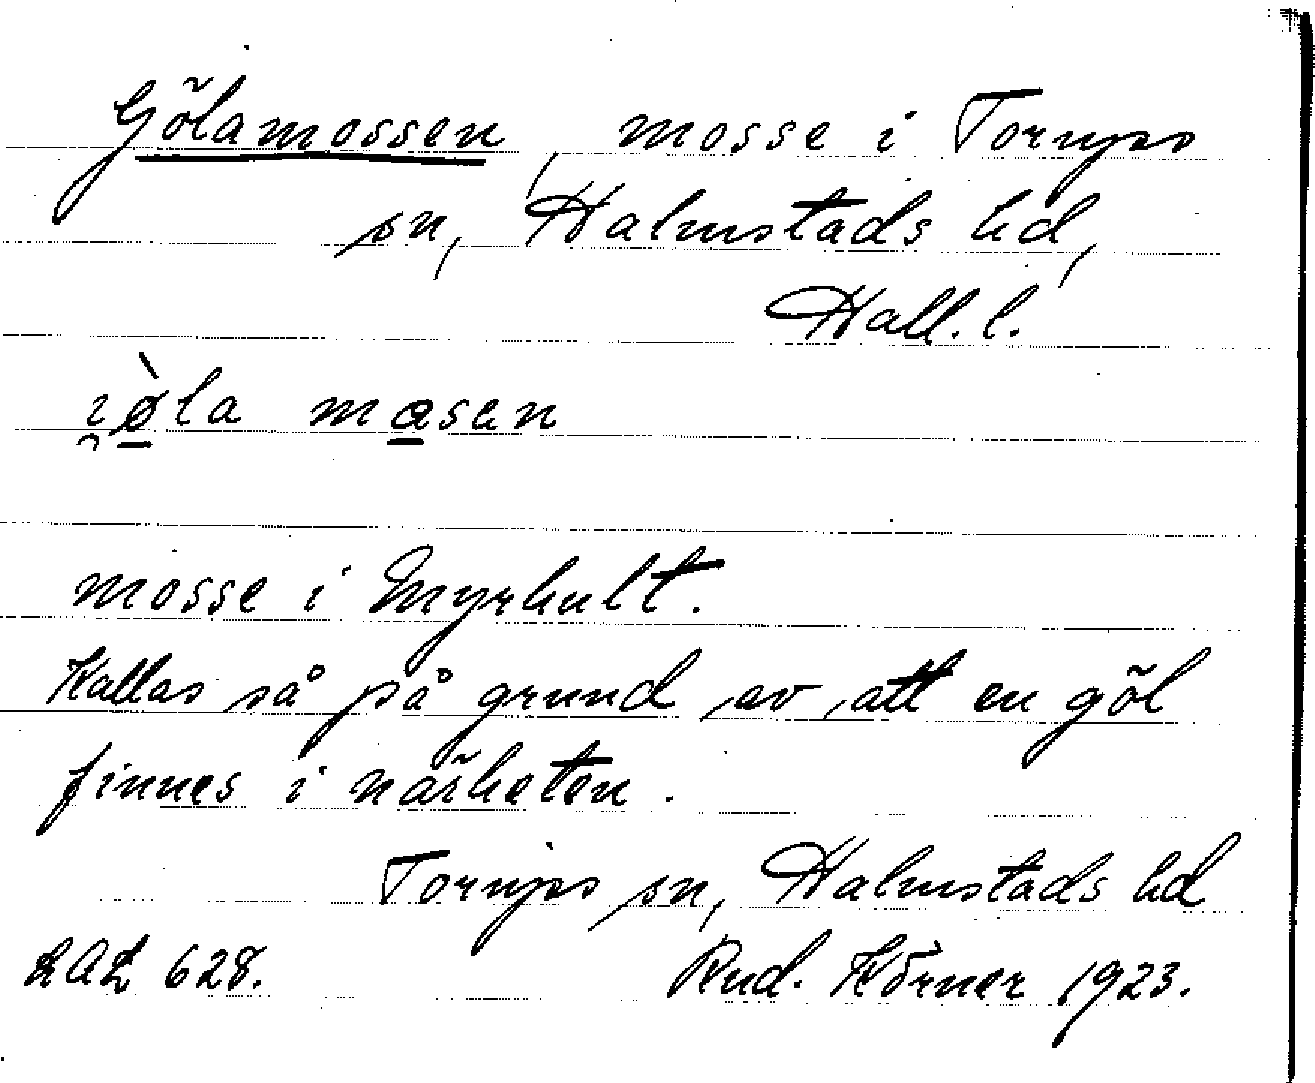 Gölamossen, mosse i Tornjos
sn, Halmstads hd,
Hall. l.
i̯ø̀la masen
mosse i Myrhult.
Kallas så på grund av, att en göl
finnes i närheten.
Tornjos sn, Halmstads hd
LAL 628. Rud. Körner 1923.